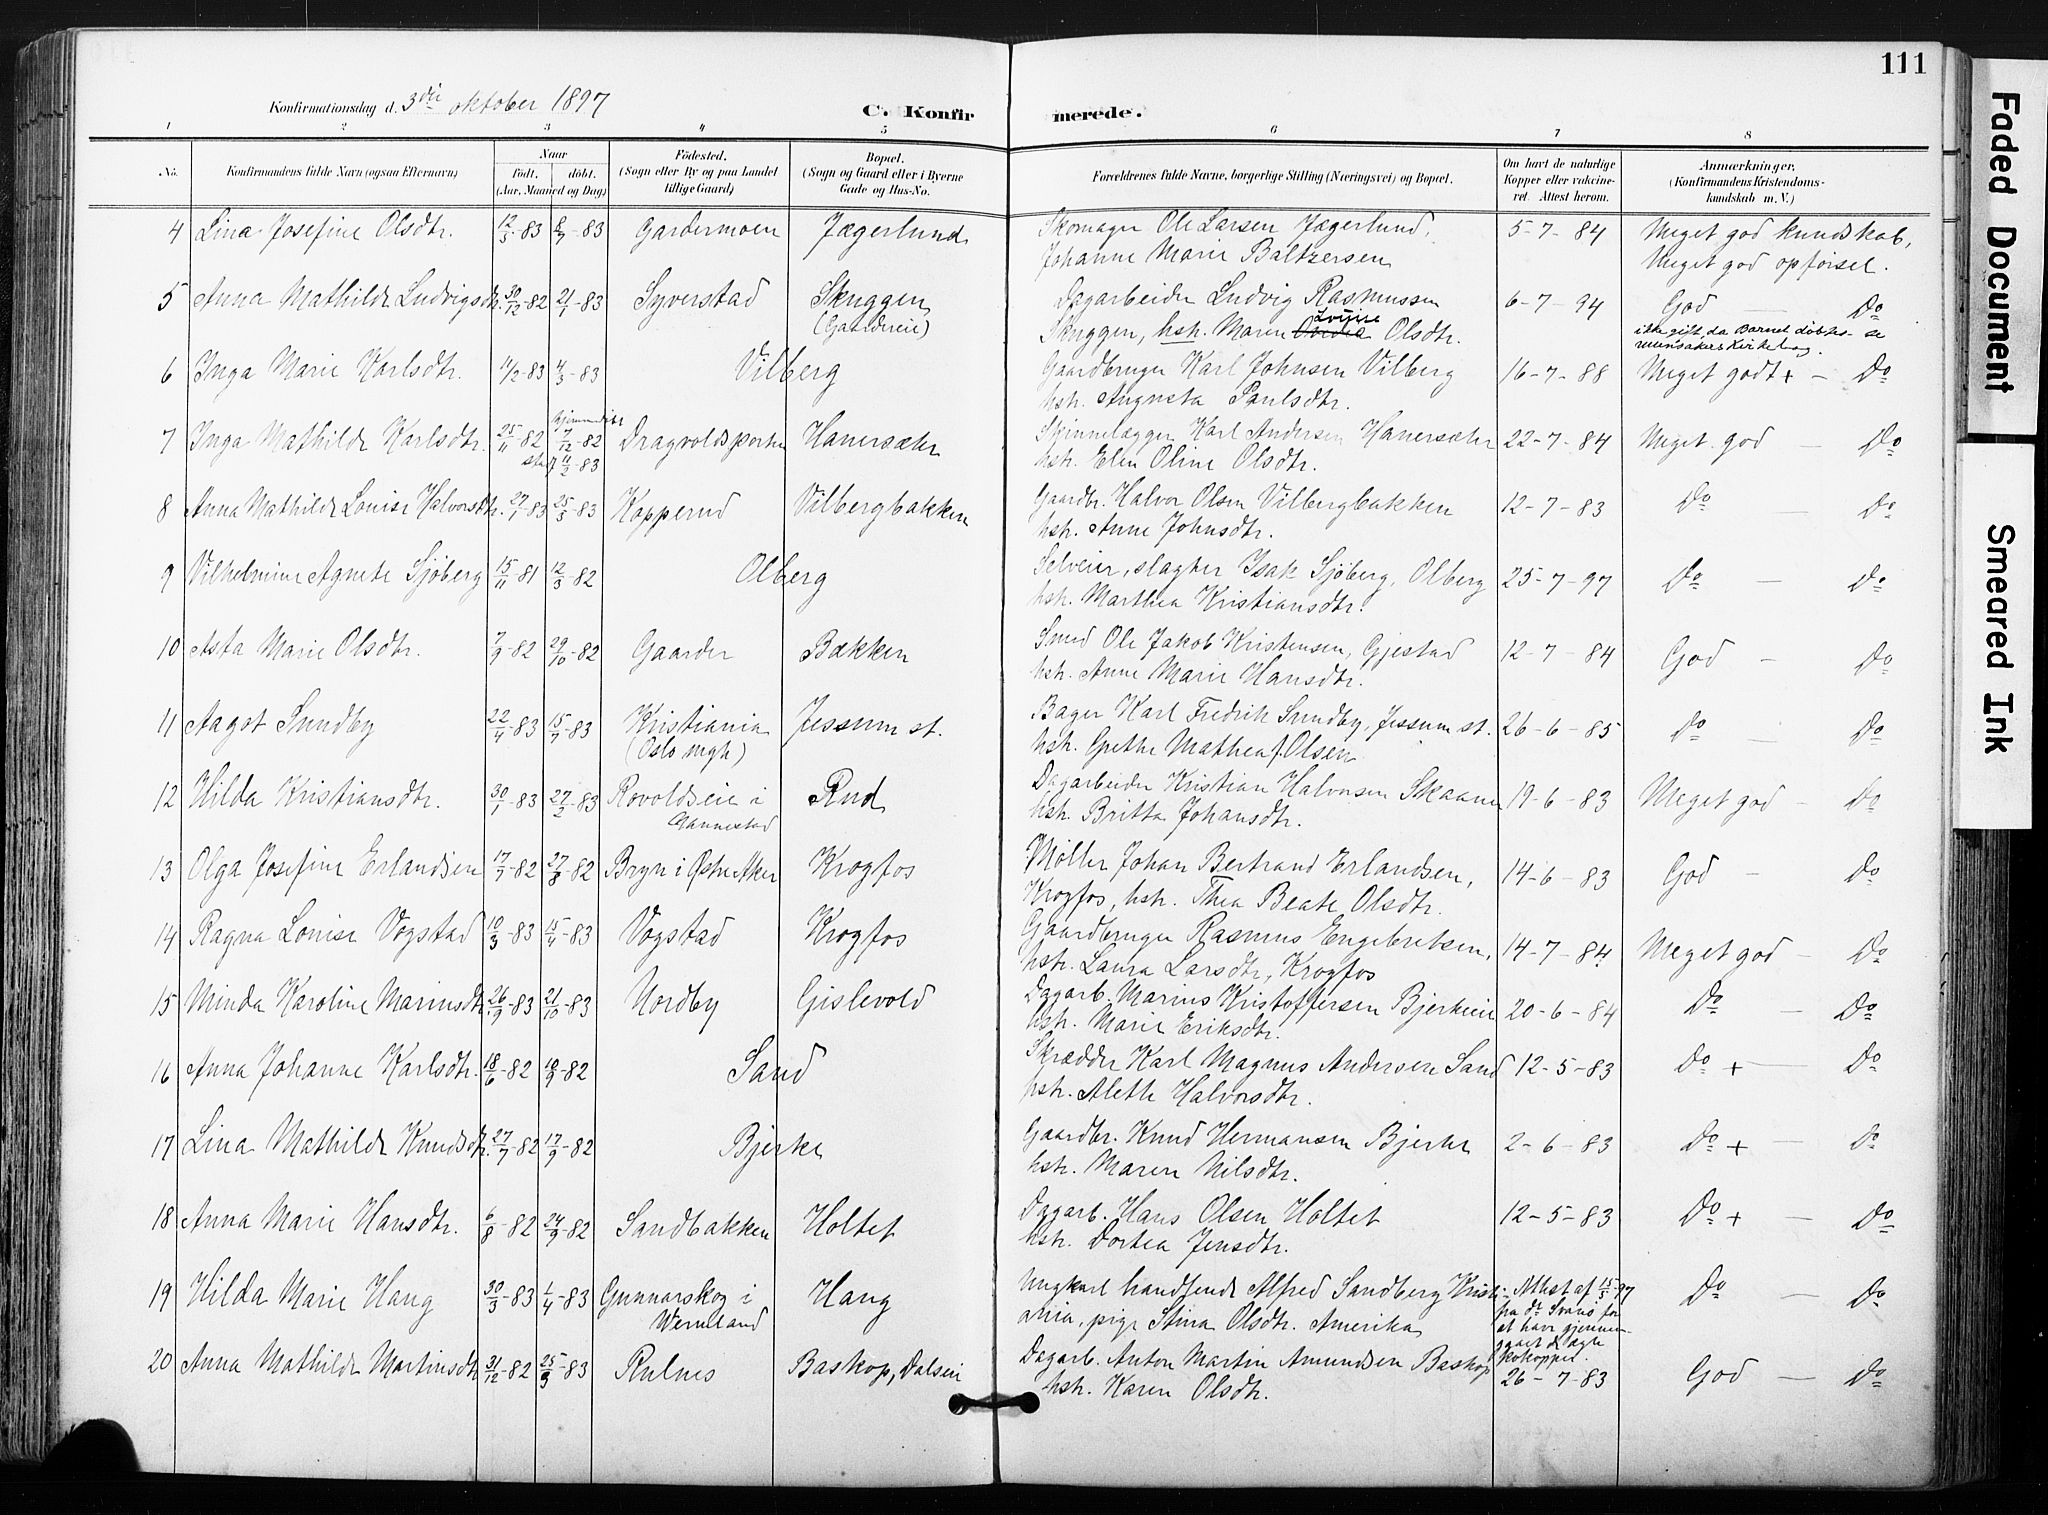 111
Konfirmationsdag d. 3die oktober 1897
C. Konfirmerede.
1 2 3 4 5 6 7 8
No. Konfirmandens fulde Navn (ogsaa Efternavn) Naar Født. døbt. (Aar, Maaned og Dag) Födested. (Sogn eller By og paa Landet tillige Gaard) Bopæl. (Sogn og Gaard eller i Byerne Gade og Hus-No. Forældrenes fulde Navne, borgerlige Stilling (Næringsvei) og Bopæl. Om havt de naturlige Kopper eller vakcineret. Attest herom. Anmærkninger, (Konfirmandens Kristendomskundskab m.V.)
4 Lina Josefine Olsdtr. 12/5-83 8/7-83 Gardermoen Jægerlund Skomager Ole Larsen Jægerlund, 5-7-84 Meget god kundskab,
Johanne Marie Baltzersen Meget god opførsel.
5 Anna Mathilde Ludvigsdtr. 30/12-82 21/1-83 Syverstad Skyggen Dagarbeider Ludvig Rasmussen 6-7-94 God Do
(Gaardereie) Skyggen, hstr. Maren Lovise Olsdtr. ikke gift, da Barnet døbtes
6 Inga Marie Karlsdtr. 14/2-83 4/3-83 Vilberg Gaardbruger Karl Johnsen Vilberg 16-7-88 Meget godt + - Do
hstr. Augusta Paulsdtr.
7 Inga Mathilde Karlsdtr. 25/11-82 hjemmedøbt 7/12-82 Dragvoldsporten Hanersæter Skinnelægger Karl Andersen Hanersæter 22-7-84 Meget god - Do
st. f. 11/2-83 hstr. Elen Oline Olsdtr.
8 Anna Mathilde Louise Halvorsdtr. 27/1-83 25/3-83 Kopperud Vilbergbakken Gaardbr. Halvor Olsen Vilbergbakken 12-7-83 Do - Do
hstr. Anne Johnsdtr.
9 Vilhelmine Agnete Sjöberg 15/11-81 12/3-82 Olberg Selveier, slagter Isak Sjöberg, Olberg 25-7-97 Do - Do
hstr. Marthea Kristiansdtr.
10 Asta Marie Olsdtr. 7/9-82 29/10-82 Gaarder Bakken Smed Ole Jakob Kristensen, Gjestad 12-7-84 God - Do
hstr. Anne Marie Hansdtr.
11 Aagot Sundby 22/4-83 15/7-83 Kristiania Jessum st. Bager Karl Fredrik Sundby, Jessum st. 26-6-85 Do - Do
(Oslo mgh) hstr. Grethe Mathea f. Olsen
12 Hilda Kristiansdtr. 30/1-83 27/2-83 Rovoldseie i Rud Dagarbeider Kristian Halvorsen Skaane 19-6-83 Meget god - Do
Gannestad hstr. Britta Johansdtr.
13 Olga Josefine Erlandsen 17/7-82 27/8-82 Bryn i Østre Aker Krogfos Møller Johan Bertrand Erlandsen, 14-6-83 God - Do
Krogfos, hstr. Thea Beate Olsdtr.
14 Ragna Louise Vogstad 10/3-83 15/4-83 Vogstad Krogfos Gaardbruger Rasmus Engebretsen, 14-7-84 Meget god - Do
hstr. Laura Larsdtr, Krogfos
15 Minda Karoline Marinsdtr 26/9-83 21/10-83 Nordby Gislevold Dagarb. Marius Kristoffersen Bjerkeeie 20-6-84 Do - Do
hstr. Marie Eriksdtr.
16 Anna Johanne Karlsdtr. 18/6-82 10/9-82 Sand Skrædder Karl Magnus Andersen Sand 12-5-83 Do + - Do
hstr. Alethe Halvorsdtr.
17 Lina Mathilde Knudsdtr. 27/7-82 17/9-82 Bjerke Gaardbr. Knud Hermansen Bjerke 2-6-83 Do + - Do
hstr. Maren Nilsdtr.
18 Anna Marie Hansdtr. 6/8-82 24/9-82 Sandbakken Holtet Dagarb. Hans Olsen Holtet 12-5-83 Do + - Do
hstr. Dortea Jensdtr.
19 Hilda Marie Haug 30/3-83 1/4-83 Gunnarskog i Haug Ungkarl handlende Alfred Sandberg Kristi- Attest af 15/5-97 Do - Do
Wermland ania, pige Stina Olsdtr. Amerika fra dr. Svans for at have gjennemgaaet de ægte kokopper.
20 Anna Mathilde Martinsdtr 31/12-82 25/3-83 Rulnes Baskop, Dalseie Dagarb. Anton Martin Amundsen Baskop 26-7-83 God - Do
hstr. Karen Olsdtr.
Faded Document
Smeared Ink